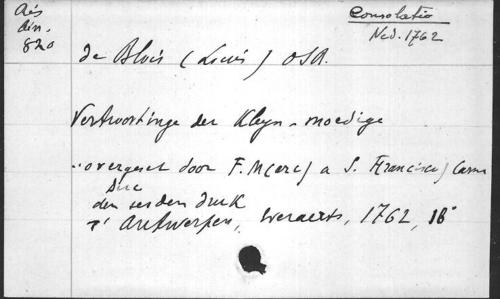 Consolatio
Ned. 1762
820
de Blois (Louis) OSB.
Vertroostinge der Kleyn-moedige
..overgeset door F. M(arc) a S. Francisco) Carm
Disc
den sesden druk
t' Antwerpen, Everaerts, 1762, 16°